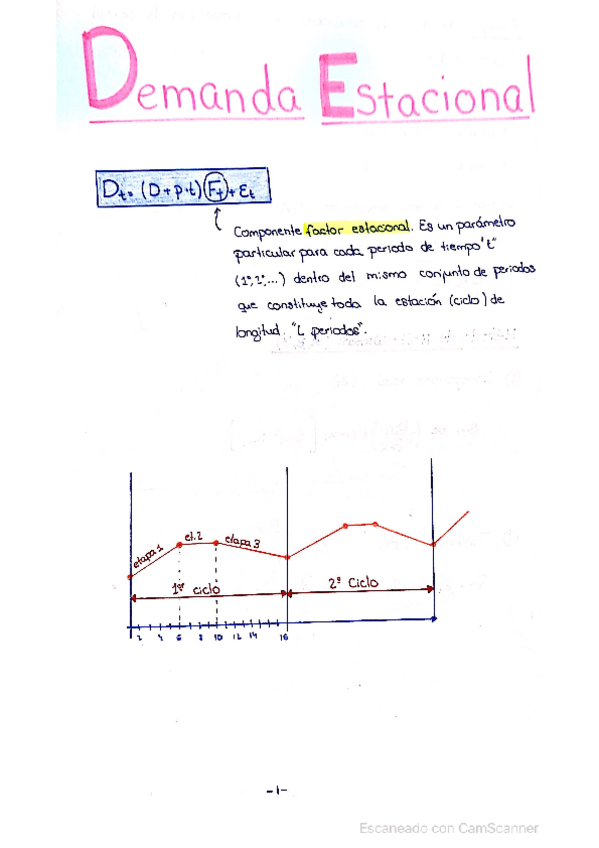 Demanda Estacional
Dt = (D+p·t)(Ft)+Et
Componente factor estacional. Es un parámetro
particular para cada periodo de tiempo "t"
(1º, 2º, ...) dentro del mismo conjunto de periodos
que constituye toda la estación (ciclo) de
longitud "L periodos".
etapa 1
et. 2
etapa 3
1er ciclo
2º Ciclo
2 4 6 8 10 12 14 16
-1-
Escaneado con CamScanner